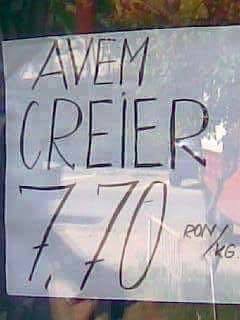 AVEM
CREIER
7,70 RON/
/KG.